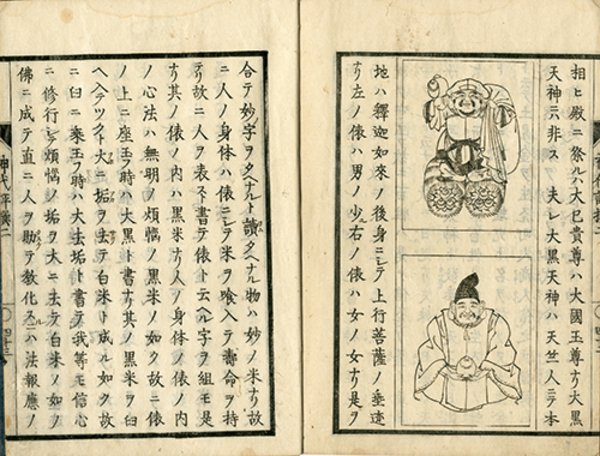 相ヒ殿ニ祭ルハ大已貴尊ハ大國王尊ナリ大黒
天神ニハ非ス夫レ大黒天神ハ天竺人ニテ本
地ハ釋迦如來ノ後身ニシテ上行菩薩ノ垂迹
ナリ左ノ俵ハ男ノ少右ノ俵ハ女ノ女ナリ是ヲ
合テ妙字ヲタヘナルト讀タヘナル物ハ妙ノ米ナリ故
ニ人ノ身体ハ俵ニシテ米ヲ喰入テ壽命ヲ持
テリ故ニ人ヲ表スト書テ俵ト云ヘル字ヲ組モ是
ナリ其ノ俵ノ内ハ黒米ナリ人ノ身体ノ俵ノ内
ノ心法ハ無明ノ煩悩ノ黒米ノ如ク故ニ俵
ノ上ニ座玉フ時ハ大黒ト書ナリ其ノ黒米ヲ臼
ヘ入テツクト大ニ垢ヲ去テ白米ト成ル如ク故
ニ臼ニ乘玉フ時ハ大去垢ト書テ我等モ信心
ニ修行シテ煩悩ノ垢ヲ大ニ去テ白米ノ如ノ
佛ニ成テ直ニ人ヲ助テ教化スルハ法報應ノ
四十三